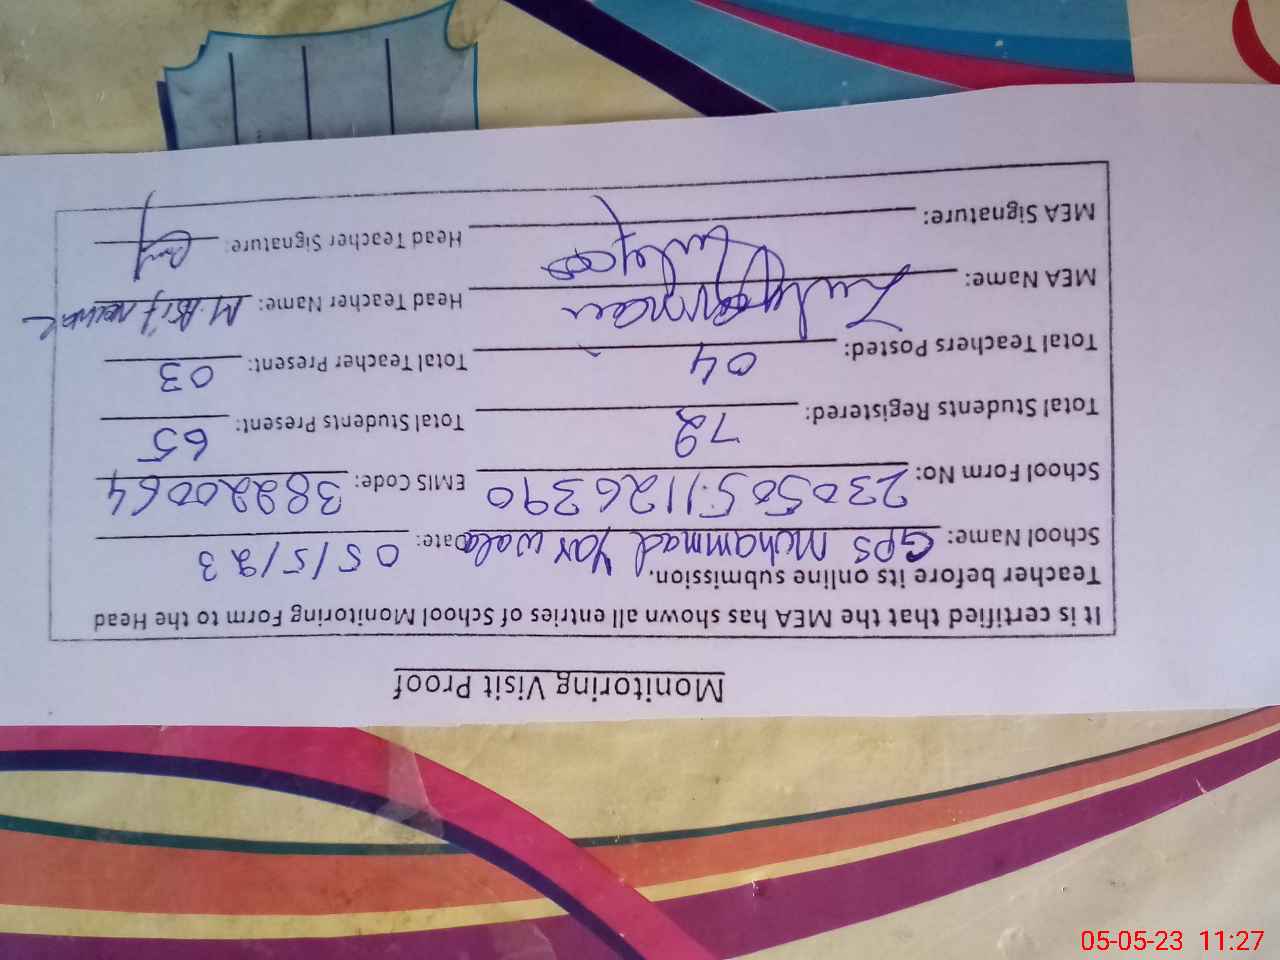 Monitoring Visit Proof
It is certified that the MEA has shown all entries of School Monitoring Form to the Head
Teacher before its online submission.
School Name: GPS Muhammad Yar wala Date: 05/5/23
School Form No: 230505.1126390 EMIS Code: 38220064
Total Students Registered: 72 Total Students Present: 65
Total Teachers Posted: 04 Total Teacher Present: 03
MEA Name: Head Teacher Name: M. Asif
MEA Signature: Head Teacher Signature:
05-05-23 11:27